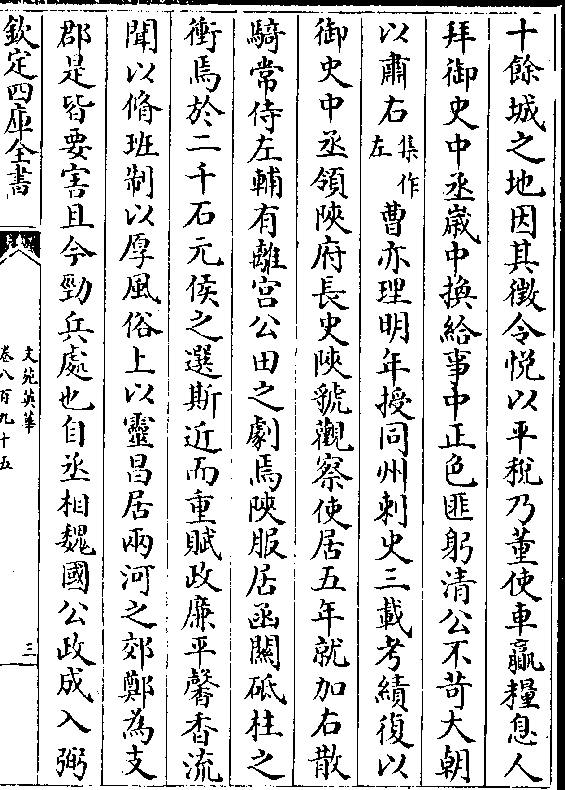 十餘城之地因其徵令恱以平稅乃董使車贏糧息人
拜御史中丞歲中換給事中正色匪躬清公不苛大朝
以肅右集作左曹亦理明年授同州刺史三載考績復以
御史中丞領陝府長史陝虢觀察使居五年就加右散
騎常侍左輔有離宫公田之劇焉陝服居函關砥柱之
衝焉於二千石元侯之選斯近而重賦政廉平馨香流
聞以脩班制以厚風俗上以靈昌居兩河之郊鄭為支
郡是皆要害且今勁兵處也自丞相魏國公政成入弼
欽定四庫全書
文苑英華
卷八百九十五
三